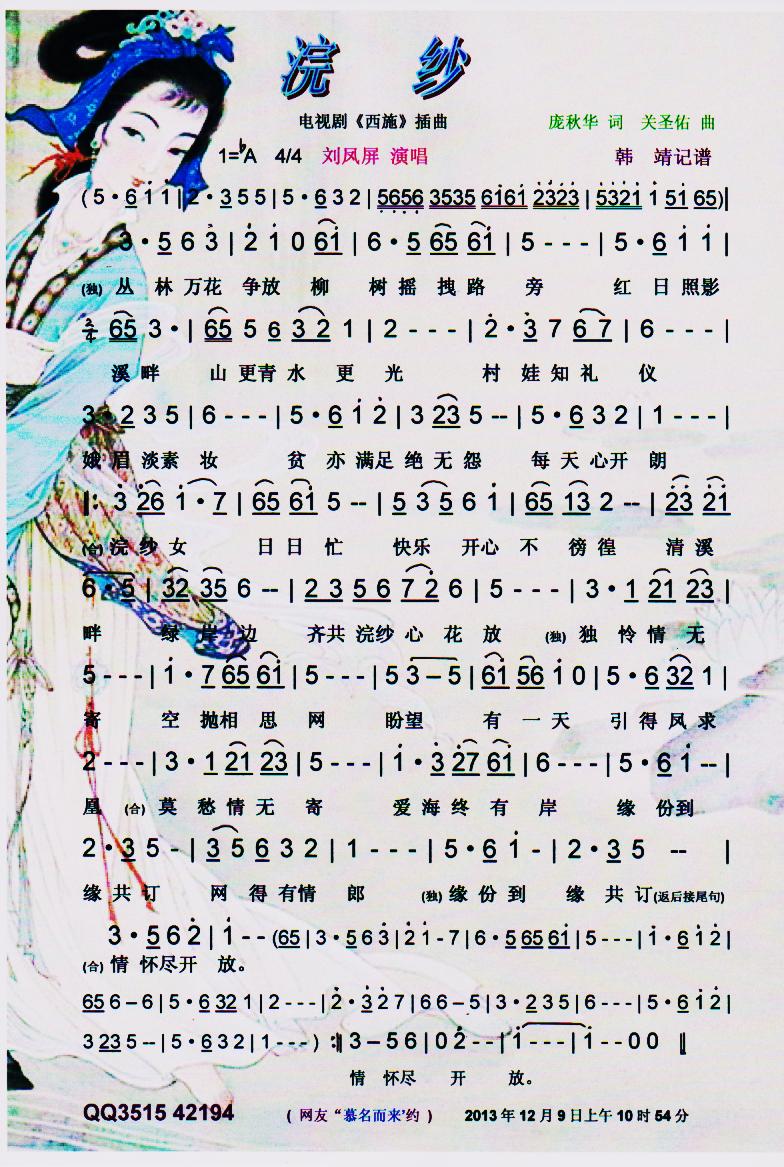 浣 纱
电视剧《西施》插曲 庞秋华 词 关圣佑 曲
1=♭A 4/4 刘凤屏 演唱 韩 靖记谱
( 5·6 1 1 | 2·3 5 5 | 5·6 3 2 | 5656 3535 6161 2323 | 5321 1 51 65)|
3·5 6 3 | 2 1 0 61 | 6·5 65 61 | 5 - - - | 5·6 1 1 |
(独) 丛 林 万花 争放 柳 树 摇 拽 路 旁 红 日 照影
3/4 65 3· | 65 5 6 3 2 1 | 2 - - - | 2·3 7 6 7 | 6 - - - |
溪畔 山 更青 水 更 光 村 娃 知 礼 仪
3·2 3 5 | 6 - - - | 5·6 1 2 | 3 23 5 -- | 5·6 3 2 | 1 - - - |
娥 眉 淡素 妆 贫 亦 满足 绝 无 怨 每 天 心开 朗
‖: 3 26 1·7 | 65 61 5 -- | 5 3 5 6 1 | 65 13 2 -- | 23 21
(合) 浣 纱 女 日 日 忙 快乐 开心 不 徬 徨 清 溪
6·5 | 32 35 6 -- | 2 3 5 6 7 2 6 | 5 - - - | 3·1 21 23 |
畔 绿 岸 边 齐共 浣纱 心 花 放 (独) 独 怜 情 无
5 - - - | 1·7 65 61 | 5 - - - | 5 3 – 5 | 61 56 1 0 | 5·6 32 1 |
寄 空 抛相 思 网 盼望 有 一 天 引 得 凤 求
2 - - - | 3·1 21 23 | 5 - - - | 1·3 27 61 | 6 - - - | 5·6 1 -- |
凰 (合) 莫 愁 情 无 寄 爱 海 终 有 岸 缘 份到
2·3 5 - | 3 5 6 3 2 | 1 - - - | 5·6 1 - | 2·3 5 -- |
缘 共 订 网 得 有情 郎 (独) 缘 份 到 缘 共 订(返后接尾句)
3·5 6 2 | 1 - - (65 | 3·5 6 3 | 2 1 - 7 | 6·5 65 61 | 5 - - - | 1·6 1 2 |
(合) 情 怀尽开 放。
65 6 – 6 | 5·6 32 1 | 2 - - - | 2·3 2 7 | 6 6 – 5 | 3·2 3 5 | 6 - - - | 5·6 1 2 |
3 23 5 -- | 5·6 3 2 | 1 - - - ) :‖ 3 – 5 6 | 0 2 - - | 1 - - - | 1 - - 0 0 ‖
情 怀尽 开 放。
QQ3515 42194 ( 网友“慕名而来'约 ) 2013 年 12 月 9 日上午 10 时 54 分